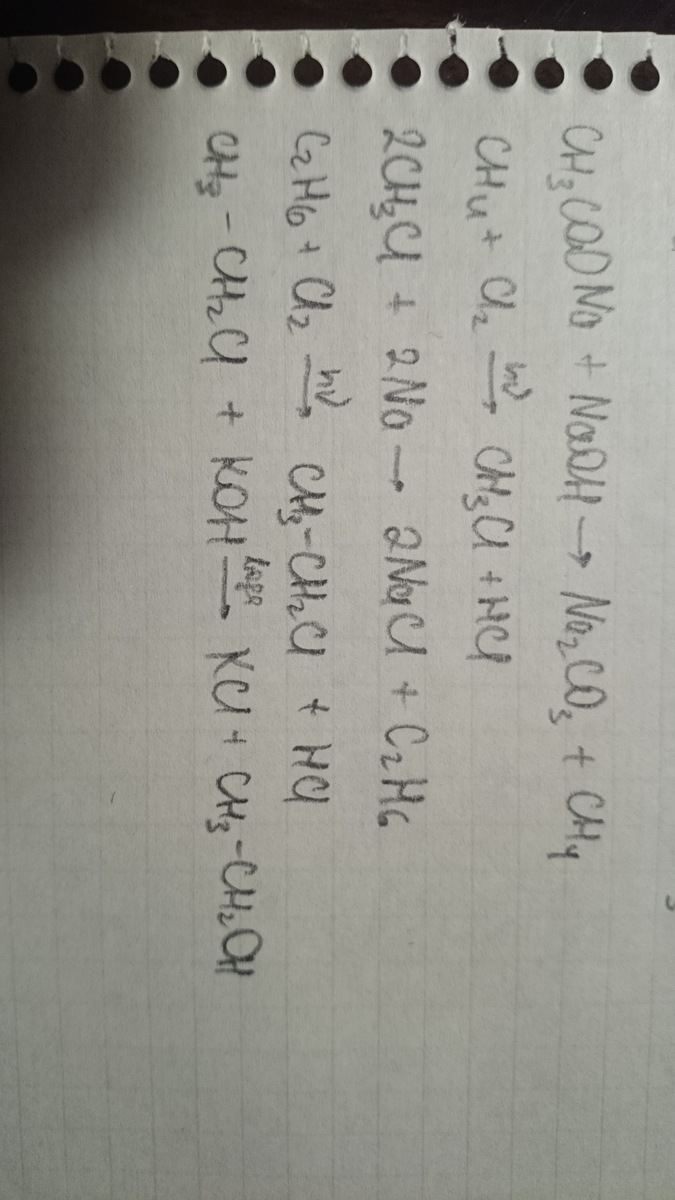 CH₃COONa + NaOH → Na₂CO₃ + CH₄
CH₄ + Cl₂ →(hν) CH₃Cl + HCl
2CH₃Cl + 2Na → 2NaCl + C₂H₆
C₂H₆ + Cl₂ →(hν) CH₃-CH₂Cl + HCl
CH₃-CH₂Cl + KOH → KCl + CH₃-CH₂OH